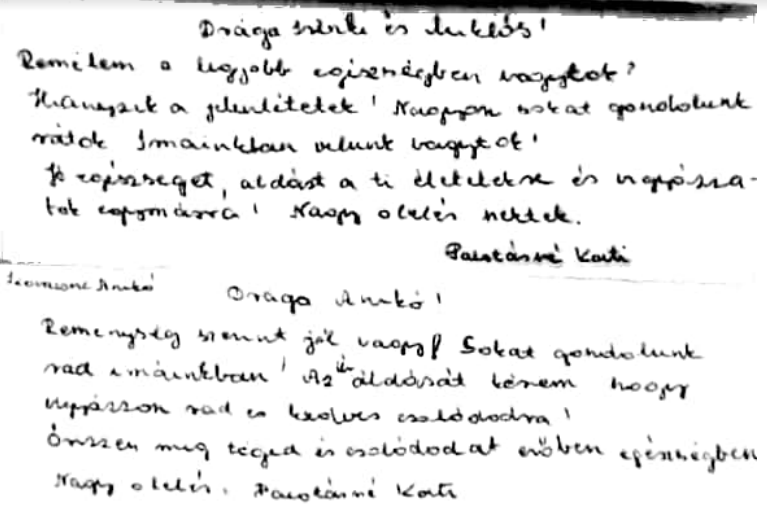 Drága és Miklós!
Remélem a legjobb egiszségben vagytok?
Hiányzik a jelenlétetek! Nagyon sokat gondolunk
rátok Imáinkban velunk vagytok!
Jó egészseget, aldást a ti életetekre és vigyázza-
tok egymásra! Nagy olelés nektek.
Palotásné Kati
Anikó
Draga Anikó!
Remenység szerint jól vagy! Sokat gondolunk
rad imáinkban! Az úr áldását kérem hogy
vigyázzon rád es kedves csaldodra!
Őrizzen meg téged és csaldodat erőben egészségben
Nagy olelés. Palotásné Kati